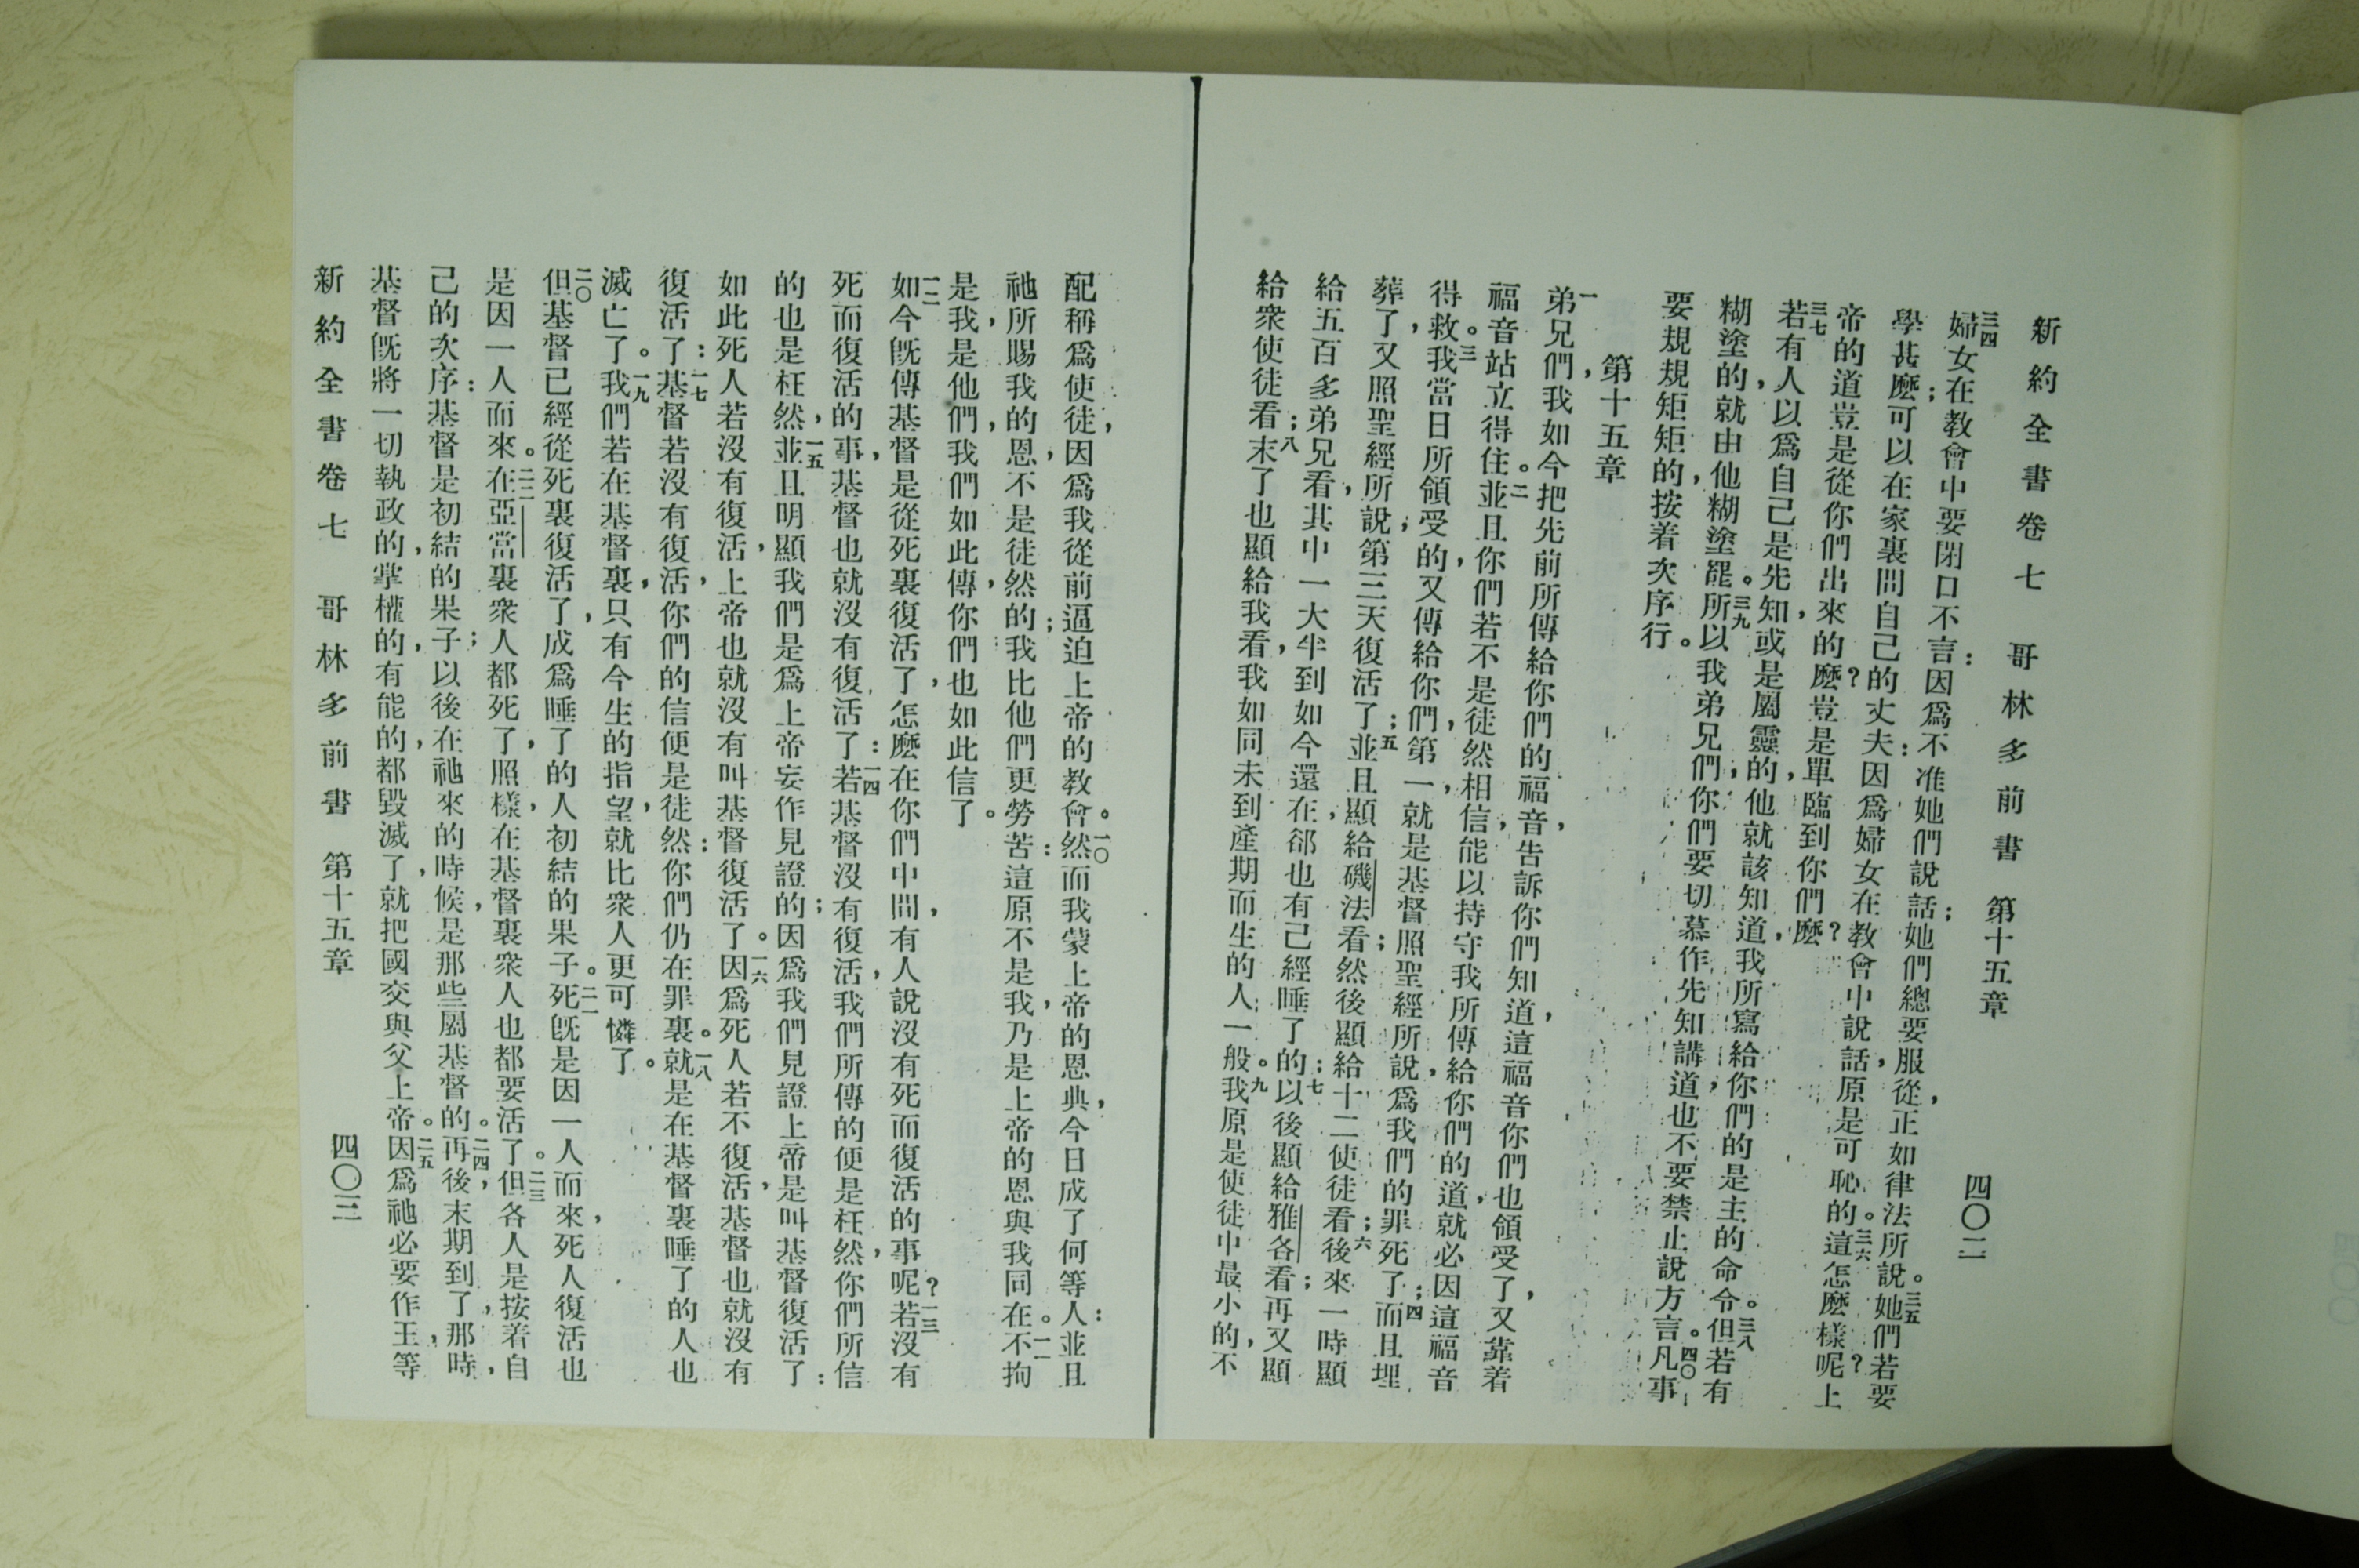 新約全書卷七　哥林多前書　第十五章　四〇二
三四婦女在教會中要閉口不言：因爲不准她們說話；她們總要服從，正如律法所說。三五她們若要
學甚麽；可以在家裏問自己的丈夫：因爲婦女在教會中說話，原是可恥的。三六這怎麽樣呢？上
帝的道豈是從你們出來的麽？豈是單臨到你們麽？
三七若有人以爲自己是先知，或是屬靈的，他就該知道，我所寫給你們的是主的命令。三八但若有
糊塗的，就由他糊塗罷。三九所以我弟兄們；你們要切慕作先知講道，也不要禁止說方言。四〇凡事
要規規矩矩的，按着次序行。
第十五章
一弟兄們，我如今把先前所傳給你們的福音，告訴你們知道，這福音你們也領受了，又靠着
福音站立得住。二並且你們若不是徒然相信，能以持守我所傳給你們的道，就必因這福音
得救。三我當日所領受的，又傳給你們，第一，就是基督照聖經所說，爲我們的罪死了；四而且埋
葬了，又照聖經所說；第三天復活了；五並且顯給磯法看；然後顯給十二使徒看；六後來一時顯
給五百多弟兄看，其中一大半到如今還在，郤也有已經睡了的；七以後顯給雅各看；再又顯
給衆使徒看；八末了也顯給我看，我如同未到產期而生的人一般。九我原是使徒中最小的，不
配稱爲使徒，因爲我從前逼迫上帝的教會。一〇然而我蒙上帝的恩典，今日成了何等人：並且
祂所賜我的恩，不是徒然的；我比他們更勞苦：這原不是我，乃是上帝的恩與我同在。一一不拘
是我，是他們，我們如此傳，你們也如此信了。
一二如今旣傳基督是從死裏復活了，怎麽在你們中間，有人說沒有死而復活的事呢？一三若沒有
死而復活的事，基督也就沒有復活了：一四若基督沒有復活，我們所傳的便是枉然，你們所信
的也是枉然，一五並且明顯我們是爲上帝妄作見證的；因爲我們見證上帝是叫基督復活了：
如此死人若沒有復活，上帝也就沒有叫基督復活了。一六因爲死人若不復活，基督也就沒有
復活了：一七基督若沒有復活，你們的信便是徒然：你們仍在罪裏。一八就是在基督裏睡了的人也
滅亡了。一九我們若在基督裏，只有今生的指望，就比衆人更可憐了。
二〇但基督已經從死裏復活了，成爲睡了的人初結的果子。二一死旣是因一人而來，死人復活也
是因一人而來。二二在亞當裏衆人都死了，照樣，在基督裏衆人也都要活了。二三但各人是按着自
己的次序：基督是初結的果子；以後在祂來的時候，是那些屬基督的。二四再後，末期到了，那時，
基督旣將一切執政的，掌權的，有能的，都毀滅了，就把國交與父上帝。二五因爲祂必要作王，等
新約全書卷七　哥林多前書　第十五章　四〇三